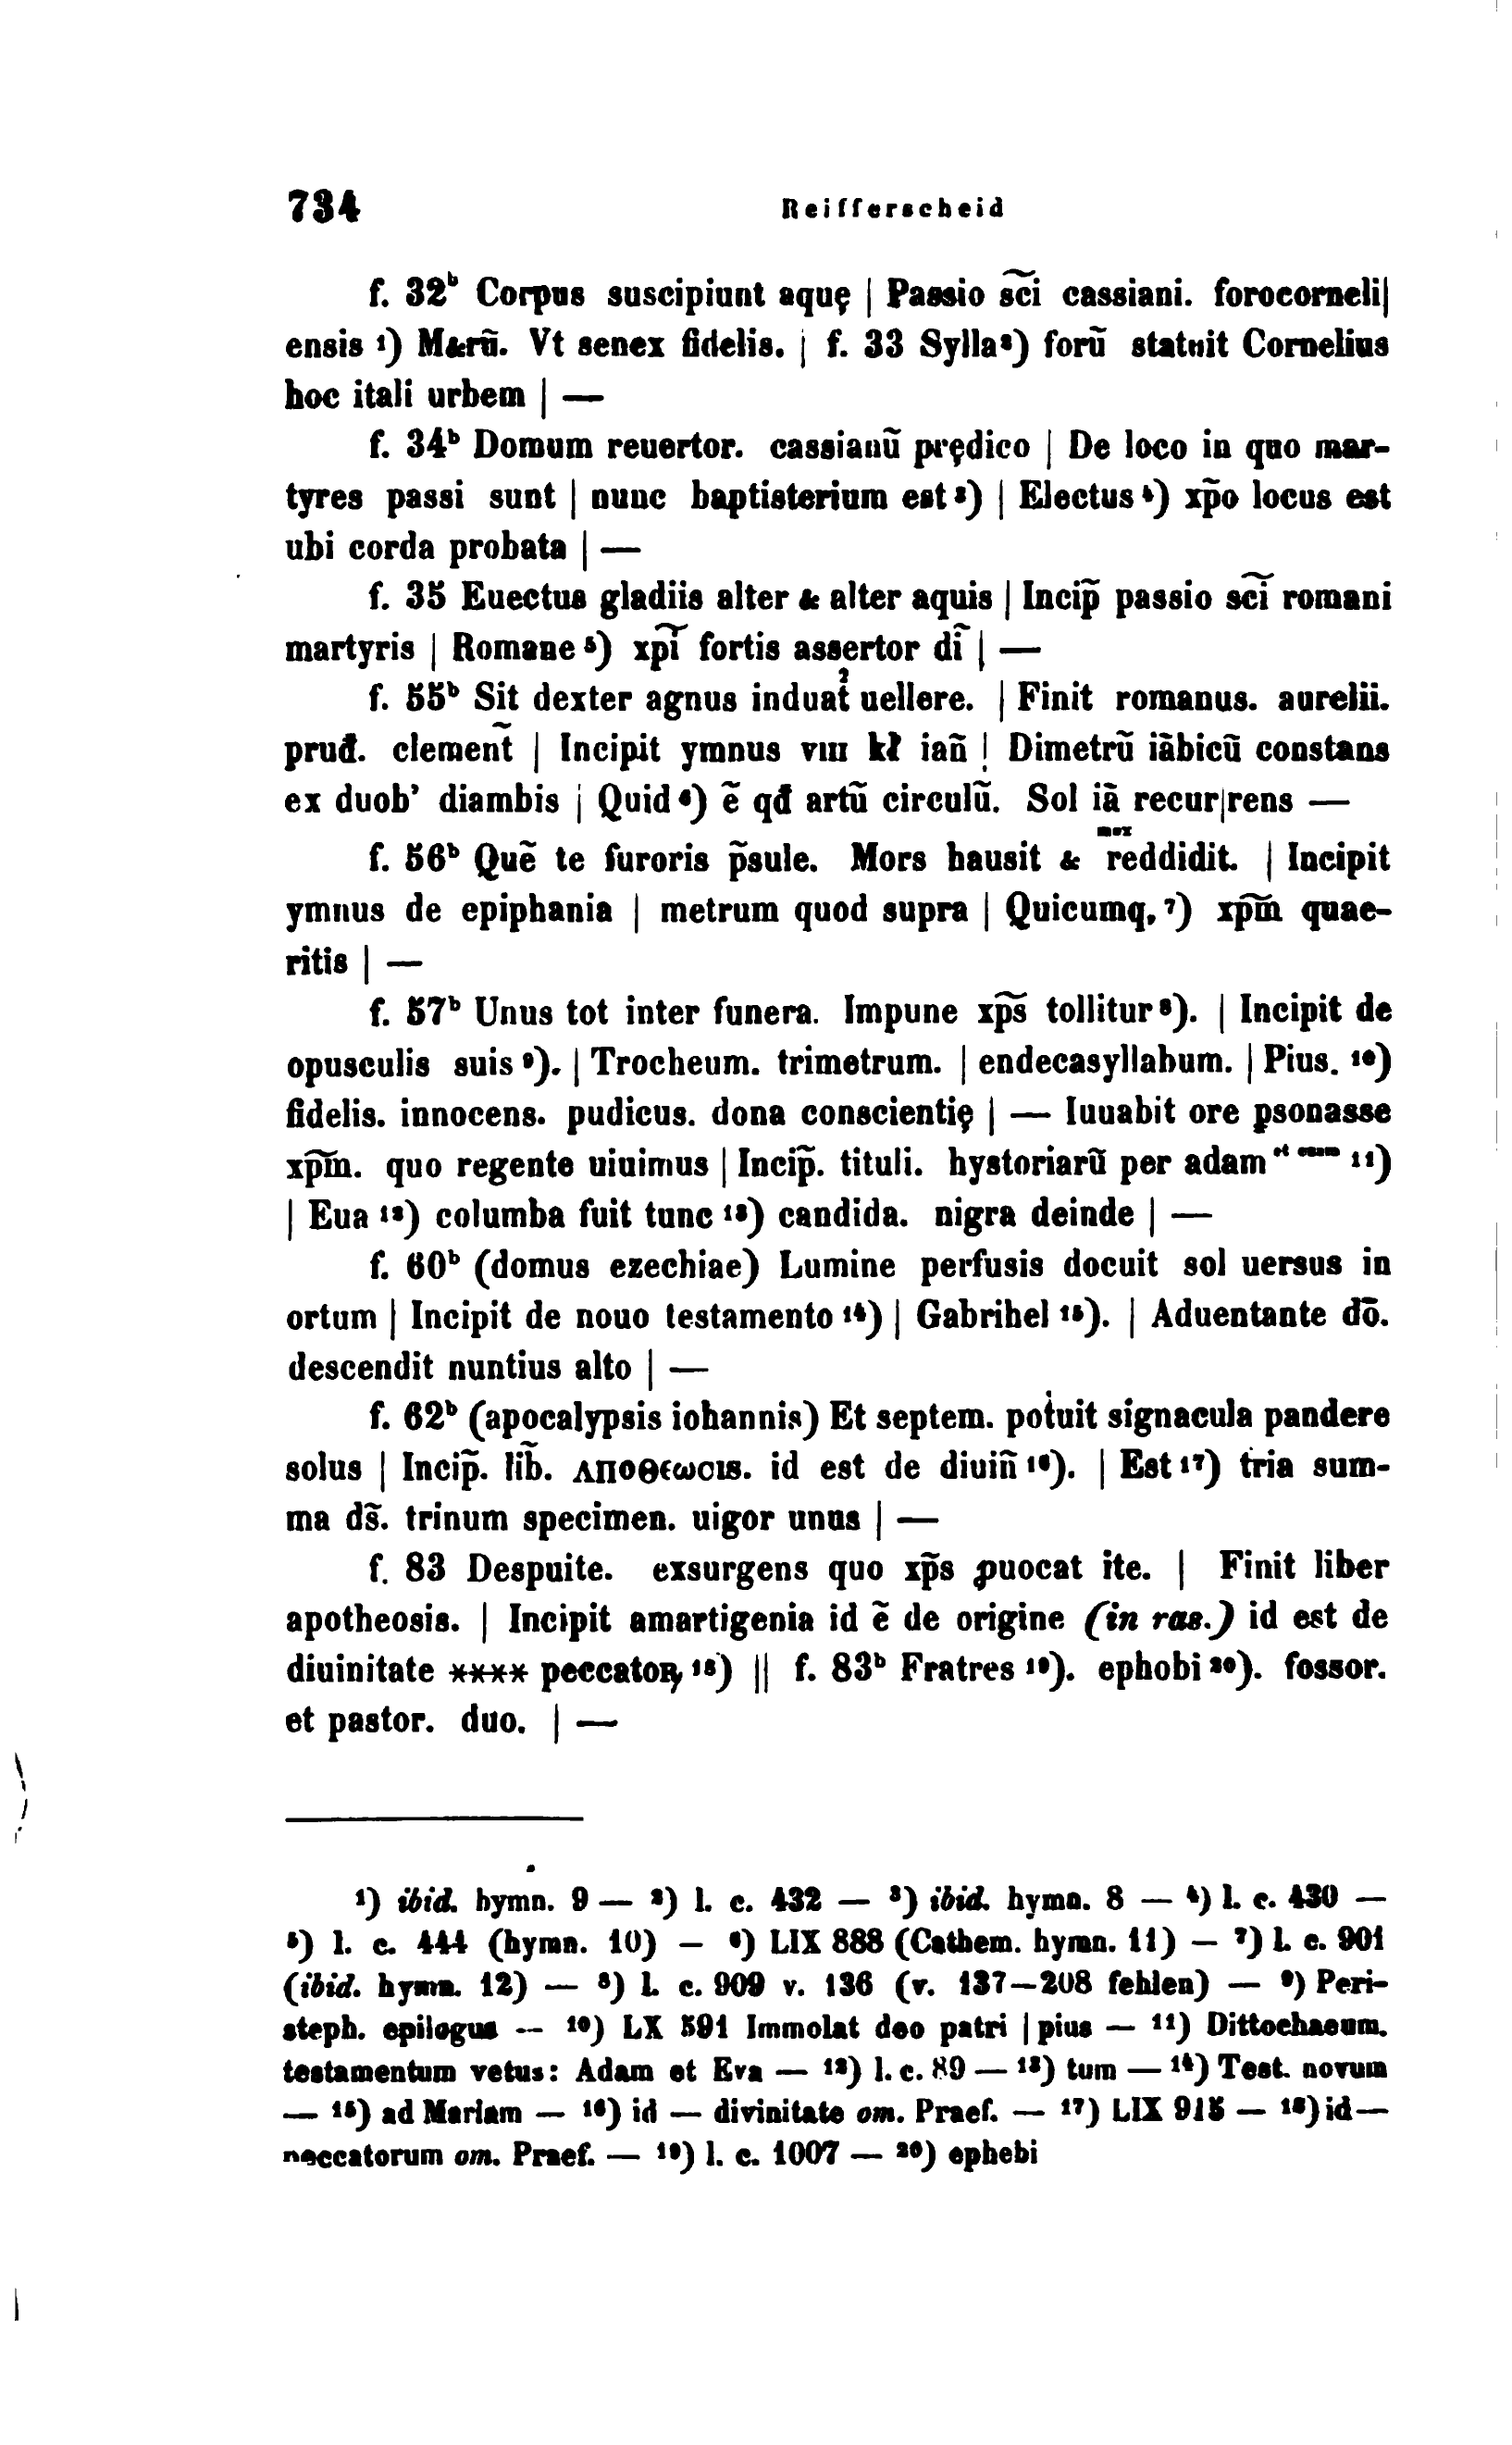 734 Reifferscheid
f. 32ᵇ Corpus suscipiunt aquę | Passio sc͠i cassiani. forocorneli|
ensis ¹) M&rũ. Vt senex fidelis. | f. 33 Sylla²) forũ statuit Cornelius
hoc itali urbem | —
f. 34ᵇ Domum reuertor. cassianũ prędico | De loco in quo mar-
tyres passi sunt | nunc baptisterium est³) | Electus⁴) xp̃o locus est
ubi corda probata | —
f. 35 Euectus gladiis alter & alter aquis | Incip̃ passio sc͠i romani
martyris | Romane⁵) xp͠i fortis assertor dĩ | —
f. 55ᵇ Sit dexter agnus induat̉ uellere. | Finit romanus. aurelii.
pruđ. clement̃ | Incipit ymnus VIII kł iañ | Dimetrũ iãbicũ constans
ex duob’ diambis | Quid⁶) ẽ qđ artũ circulũ. Sol iã recur|rens —
f. 56ᵇ Quẽ te furoris p̃sule. Mors hausit & ᵐᵒˣ reddidit. | Incipit
ymnus de epiphania | metrum quod supra | Quicumq,⁷) xp͠m quae-
ritis | —
f. 57ᵇ Unus tot inter funera. Impune xp͠s tollitur⁸). | Incipit de
opusculis suis⁹). | Trocheum. trimetrum. | endecasyllabum. | Pius.¹⁰)
fidelis. innocens. pudicus. dona conscientię | — Iuuabit ore ꝑsonasse
xp͠m. quo regente uiuimus | Incip̃. tituli. hystoriarũ per adam ¹¹)
| Eua¹²) columba fuit tunc¹³) candida. nigra deinde | —
f. 60ᵇ (domus ezechiae) Lumine perfusis docuit sol uersus in
ortum | Incipit de nouo testamento¹⁴) | Gabrihel¹⁵). | Aduentante dõ.
descendit nuntius alto | —
f. 62ᵇ (apocalypsis iohannis) Et septem. potuit signacula pandere
solus | Incip̃. lib̃. ΑΠΟΘΕωCIS. id est de diuiñ¹⁶). | Est¹⁷) tria sum-
ma ds̃. trinum specimen. uigor unus | —
f. 83 Despuite. exsurgens quo xp̃s ꝓuocat ite. | Finit liber
apotheosis. | Incipit amartigenia id ẽ de origine (in ras.) id est de
diuinitate **** peccatoꝶ¹⁸) || f. 83ᵇ Fratres¹⁹). ephobi²⁰). fossor.
et pastor. duo. | —
¹) ibid. hymn. 9 — ²) l. c. 432 — ³) ibid. hymn. 8 — ⁴) l. c. 430 —
⁵) l. c. 444 (hymn. 10) — ⁶) LIX 888 (Cathem. hymn. 11) — ⁷) l. c. 901
(ibid. hymn. 12) — ⁸) l. c. 909 v. 136 (v. 137—208 fehlen) — ⁹) Peri-
steph. epilogus — ¹⁰) LX 591 Immolat deo patri | pius — ¹¹) Dittochaeum.
testamentum vetus: Adam et Eva — ¹²) l. c. 89 — ¹³) tum — ¹⁴) Test. novum
— ¹⁵) ad Mariam — ¹⁶) id — divinitate om. Praef. — ¹⁷) LIX 915 — ¹⁸) id —
peccatorum om. Praef. — ¹⁹) l. c. 1007 — ²⁰) ephebi